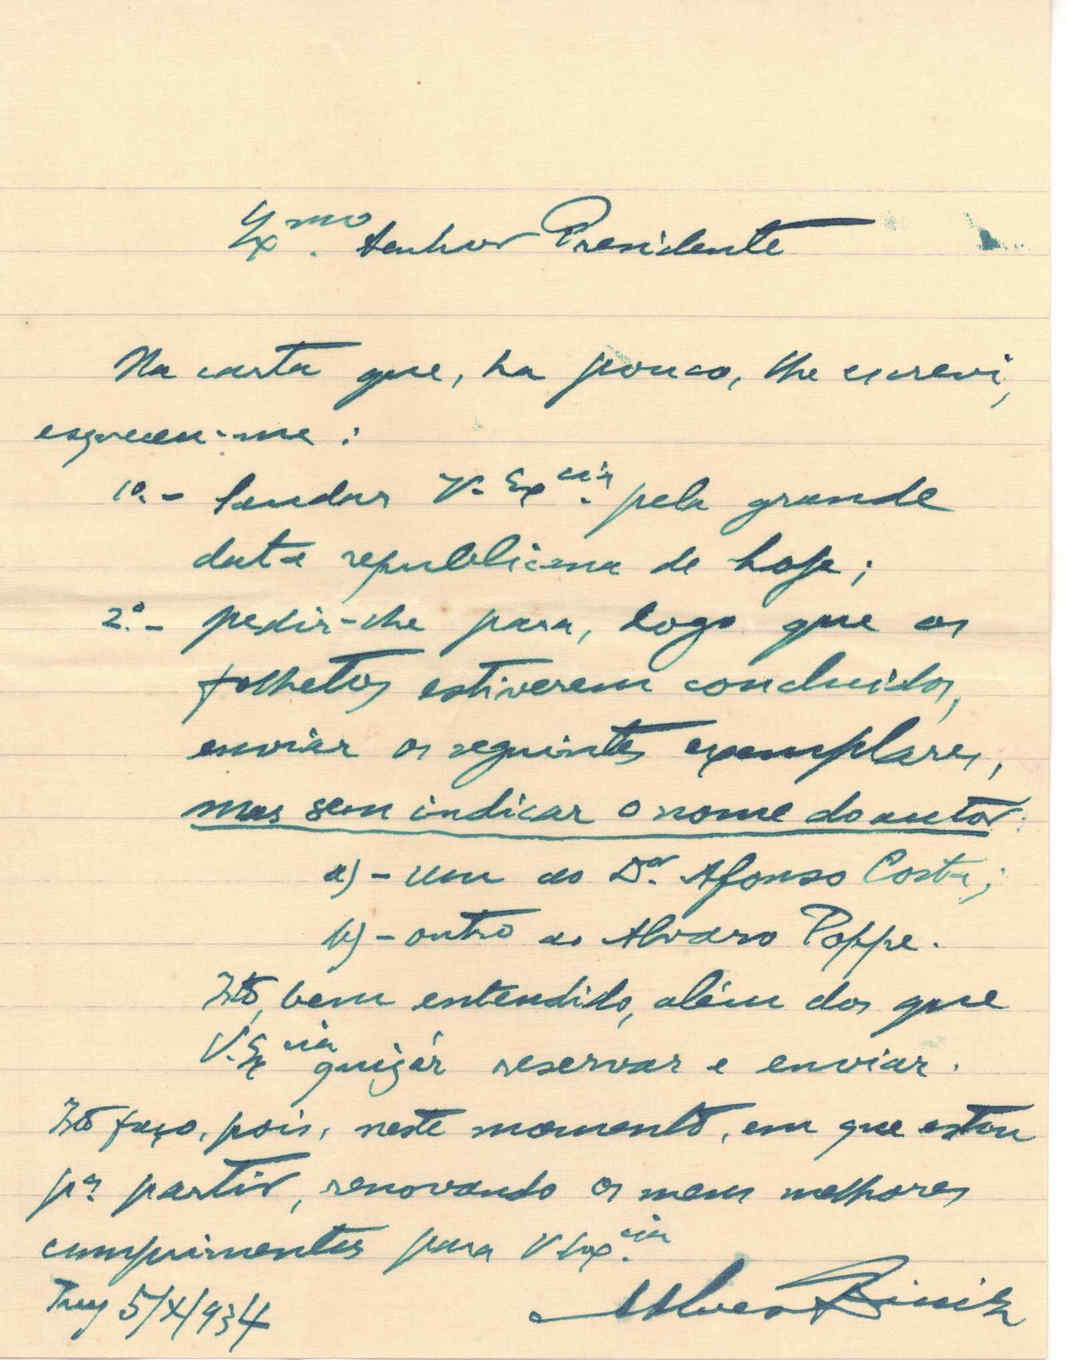 Exmo. Senhor Presidente
Na carta que, ha pouco, lhe escrevi,
esqueceu-me:
1º.- Saudar V. Excia. pela grande
data republicana de hoje;
2.º- pedir-lhe para, logo que os
folhetos estiverem concluidos,
enviar os seguintes exemplares,
mas sem indicar o nome do autor:
a) - um ao Dor. Afonso Costa;
b) - outro ao Alvaro Poppe.
Isto, bem entendido, além dos que
V. Excia quizér reservar e enviar.
Isto faço, pois, neste momento, em que estou
pª partir, renovando os meus melhores
cumprimentos para V. Excia.
Tuy 5/X/934